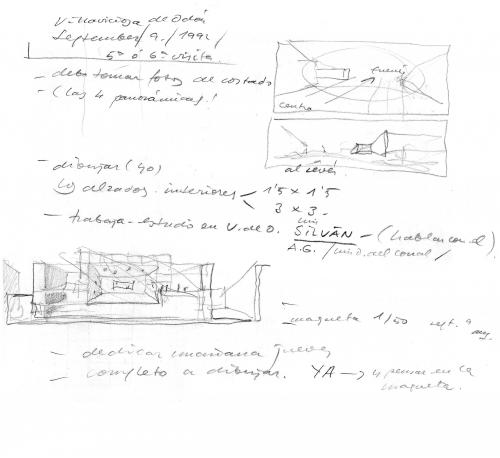 V-Naviciosa de Odón
September / 9 / 199
5ª ó 6ª visita
- debo tomar fotos de costado
- (las 4 panorámicas!
centro
al revés
- dibujar (yo)
los alzados interiores 1'5 x 1'5
3 x 3 -
- trabaja-estudio en V. de O. SILVÁN - (hablar con el)
A.G. /
- maqueta 1/50
- dedicar mañana jueves
- completo a dibujar. YA → y pensar en la
maqueta.